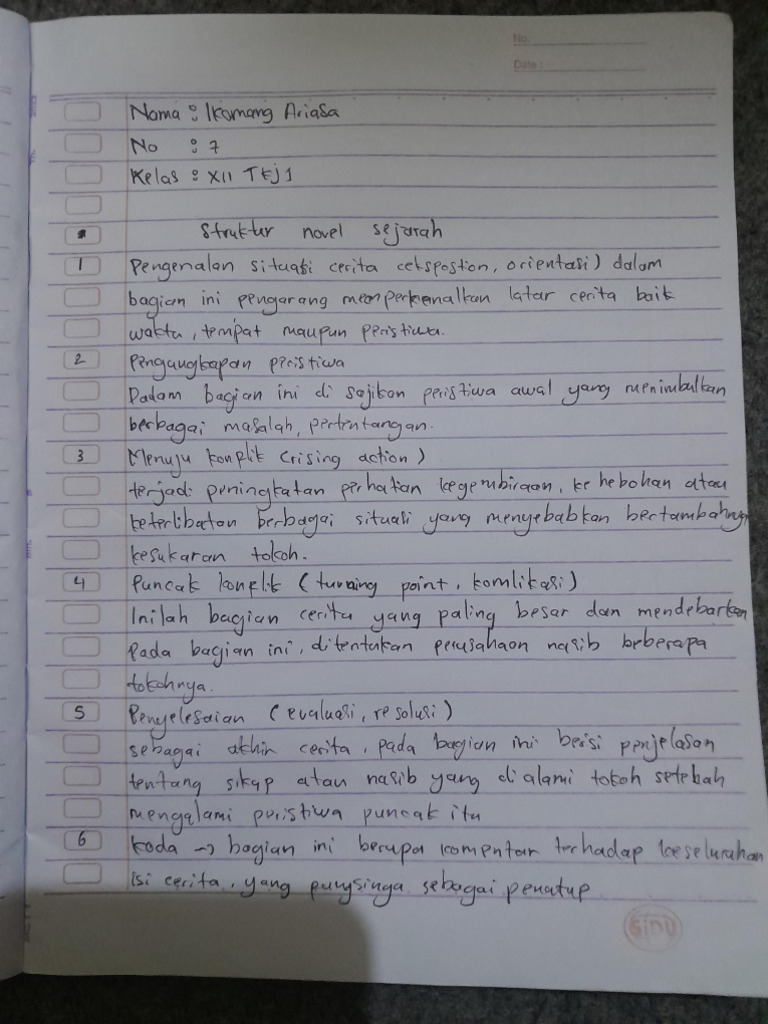 No.
Date :
Nama : Ikomang Ariasa
No : 7
Kelas : XII TKj 1
Struktur novel sejarah
1 Pengenalan situasi cerita (ekspostion, orientasi) dalam
bagian ini pengarang memperkenalkan latar cerita baik
waktu, tempat maupun peristiwa.
2 Pengungkapan peristiwa
Dadam bagian ini di sajikan peristiwa awal yang menimbulkan
berbagai masalah, pertentangan.
3 Menuju konplik (rising action)
terjadi peningkatan perhatian kegembiraan, ke hebohan atau
keterlibatan berbagai situasi yang menyebabkan bertambahnya
kesukaran tokoh.
4 Puncak konplik (turning point, komlikasi)
Inilah bagian cerita yang paling besar dan mendebarkan
Pada bagian ini, ditentukan perusahaan nasib beberapa
tokohnya.
5 Penyelesaian (evaluasi, resolusi)
sebagai akhir cerita, pada bagian ini berisi penjelasan
tentang sikap atau nasib yang dialami tokoh setebah
mengalami peristiwa puncak itu
6 koda → bagian ini berupa komentar terhadap keselurahan
isi cerita, yang punysinga sebagai penutup
SiDU